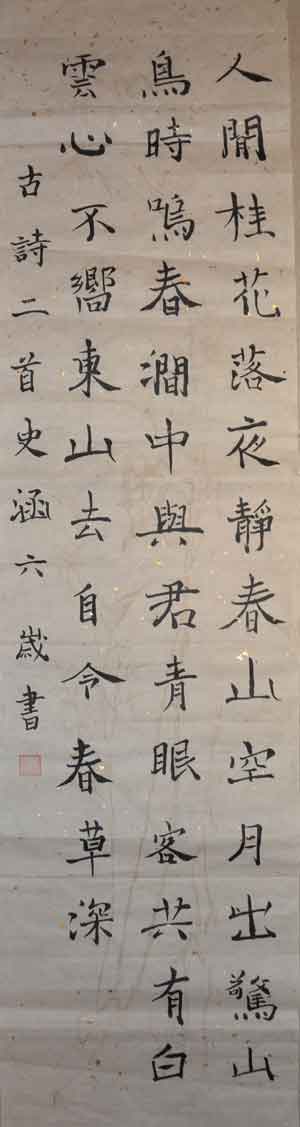 人閒桂花落夜靜春山空月出驚山
鳥時鳴春澗中與君青眼客共有白
雲心不嚮東山去自令春草深
古詩二首史涵六歲書